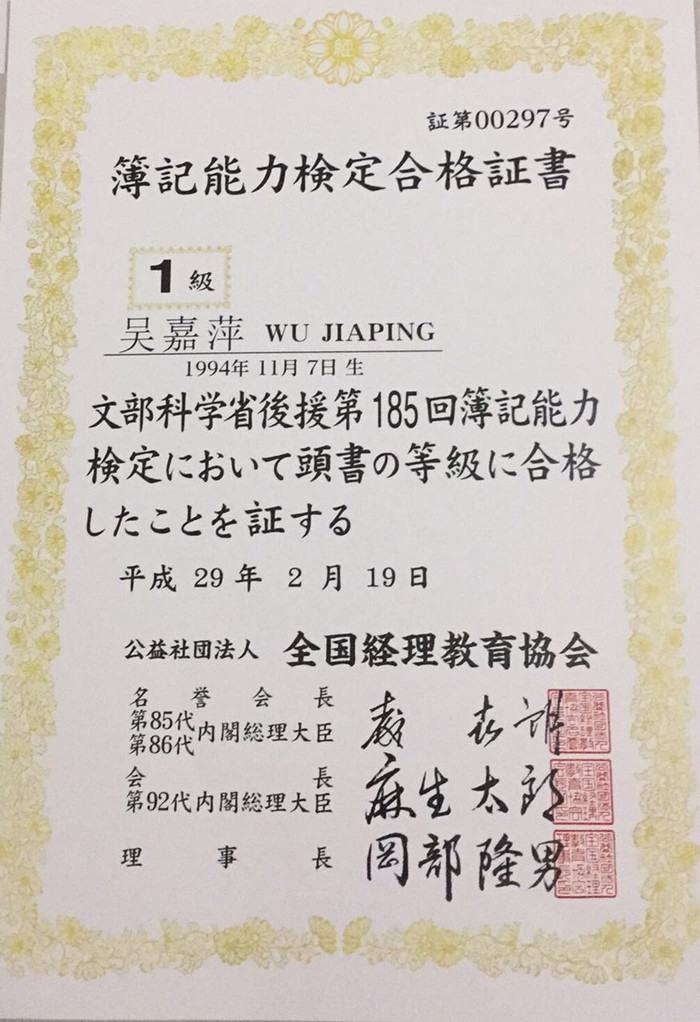 証第00297号
簿記能力検定合格証書
1級
吴嘉萍 WU JIAPING
1994年 11月 7日 生
文部科学省後援第185回簿記能力
検定において頭書の等級に合格
したことを証する
平成 29 年 2 月 19 日
公益社団法人 全国経理教育協会
名誉会長
第85代
第86代 内閣総理大臣
会長
第92代内閣総理大臣 麻生太郎
理事長 岡部隆男